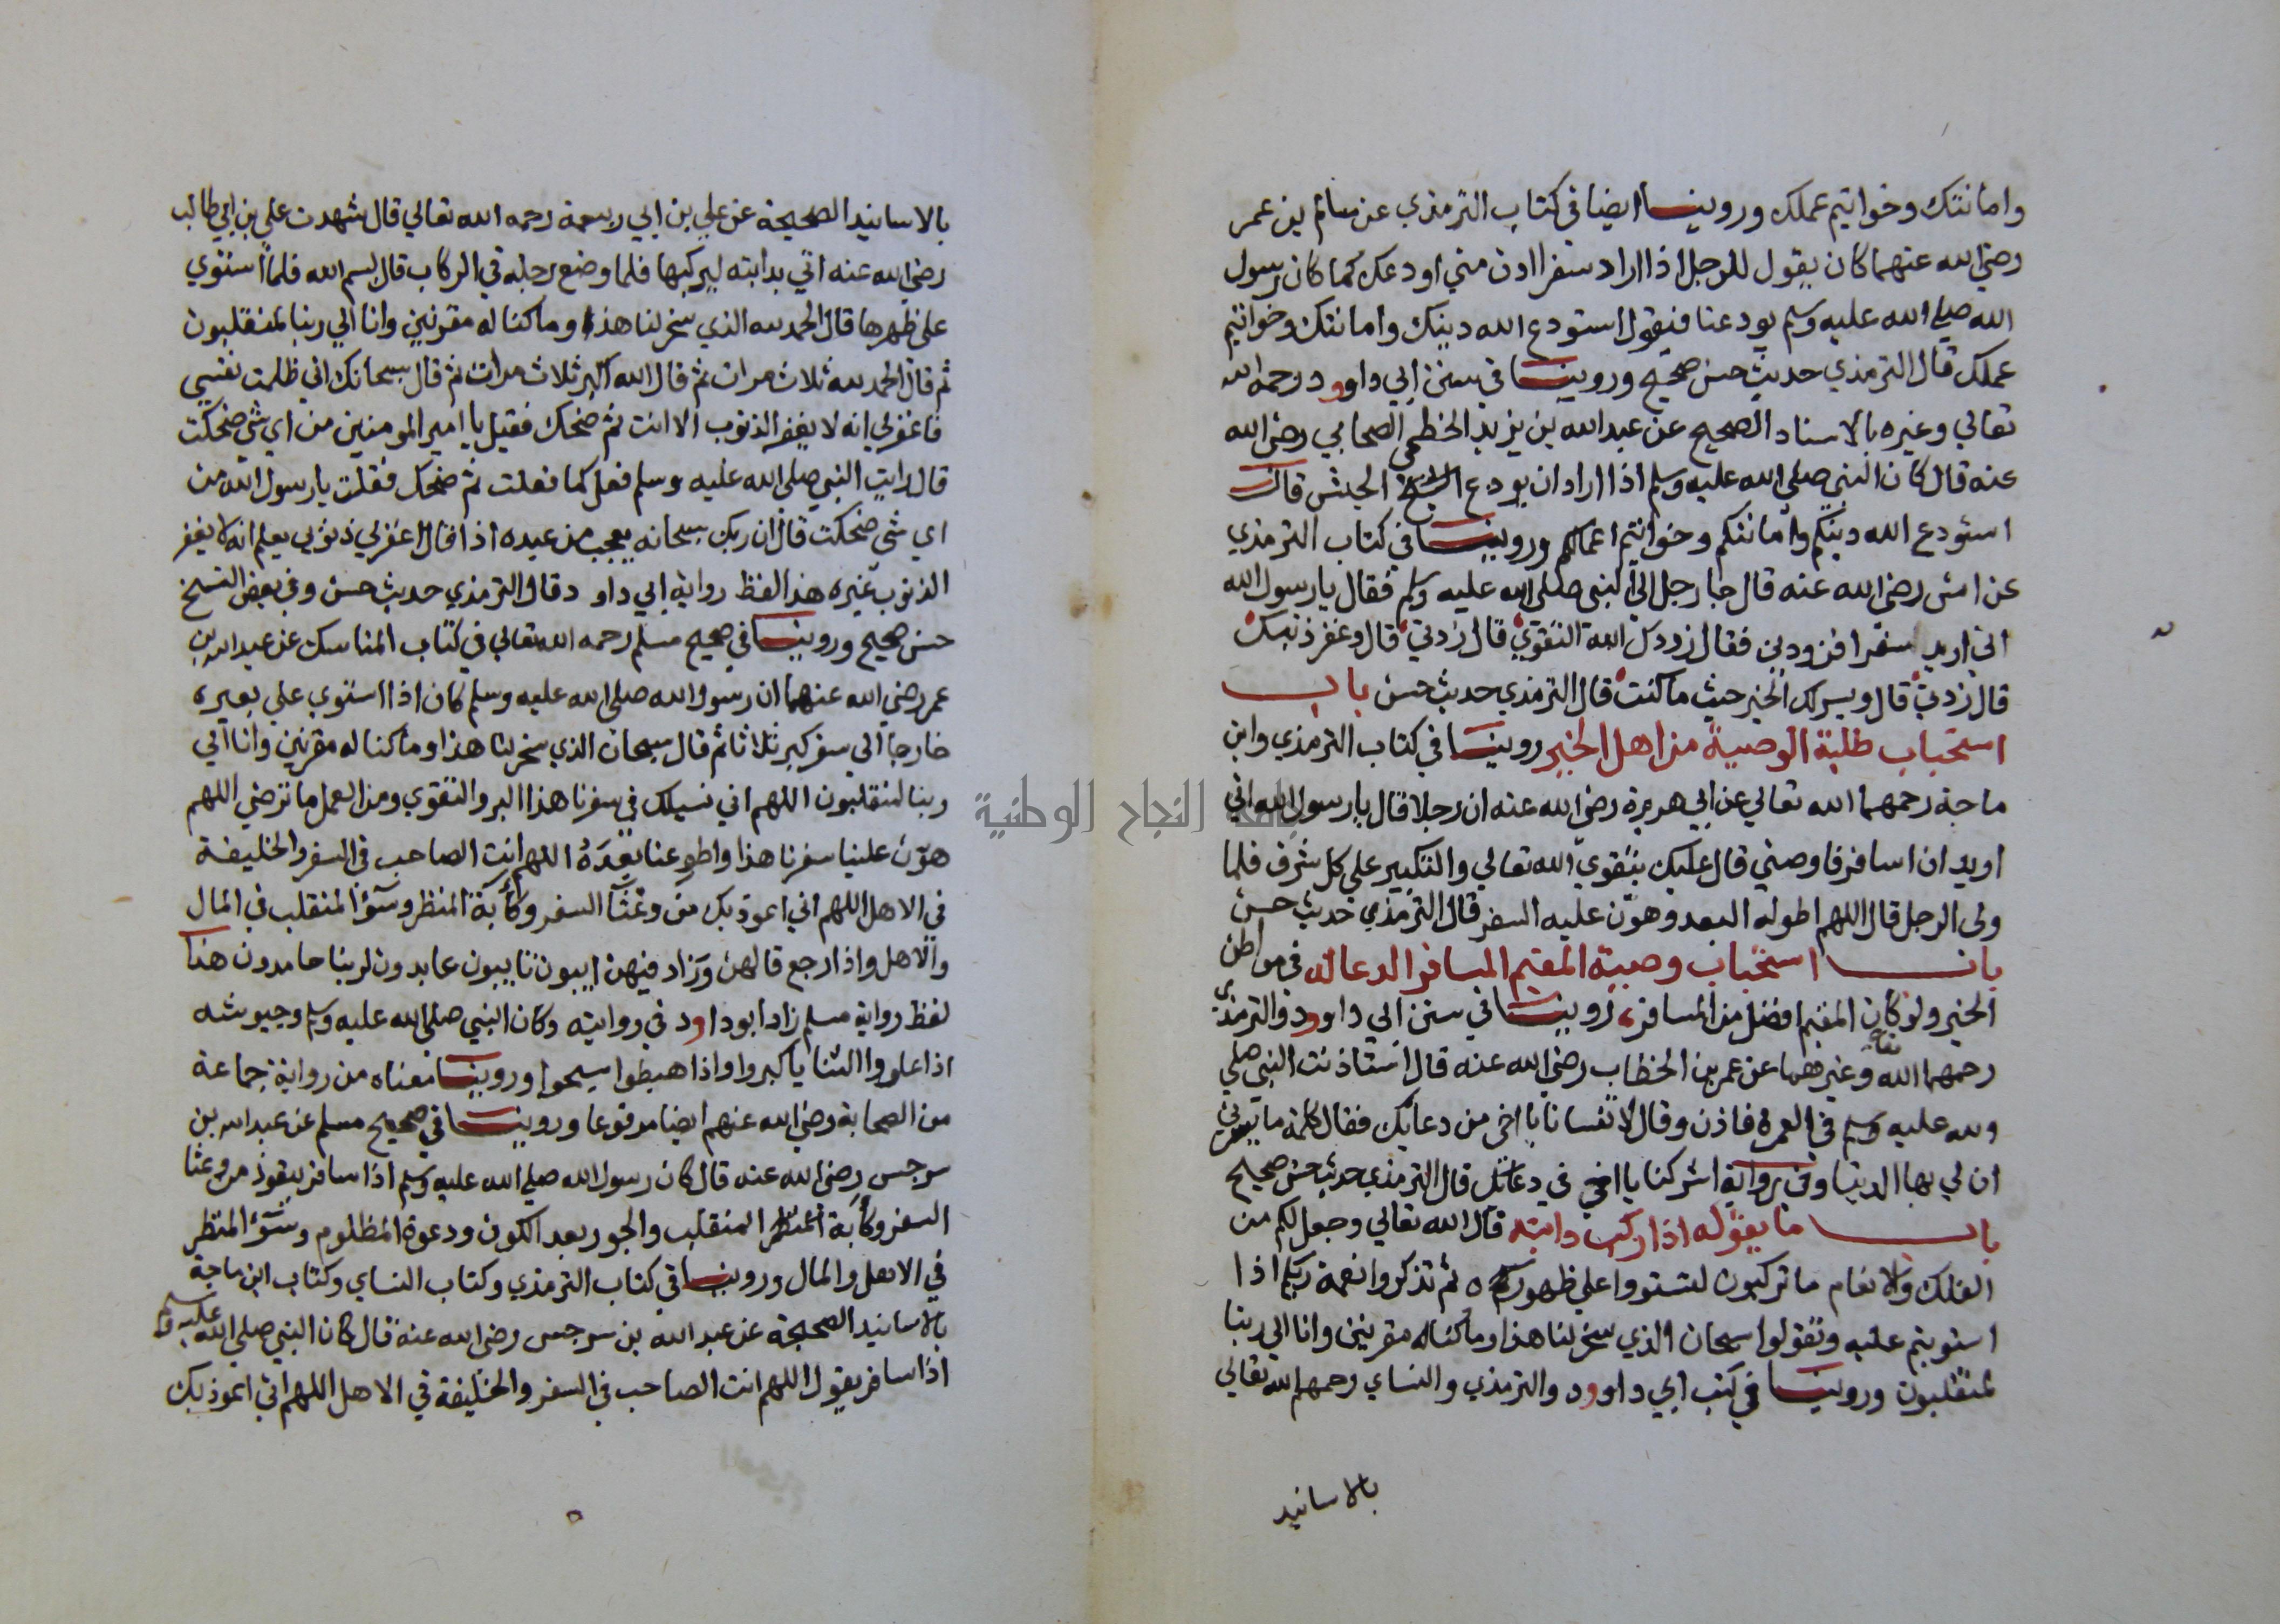 وامانتك وخواتيم عملك وروينا ايضا في كتاب الترمذي عن سالم بن عمر
رضي الله عنهما كان يقول للرجل اذا اراد سفرا ادن مني اودعك كما كان رسول
الله صلي الله عليه وسلم يودعنا فنقول استودع الله دينك وامانتك وخواتيم
عملك قال الترمذي حديث حسن صحيح وروينا في سنن ابي داوود رحمه الله
تعالي وغيره بالاسناد الصحيح عن عبد الله بن يزيد الخطمي الصحابي رضي الله
عنه قال كان النبي صلي الله عليه وسلم اذا اراد ان يودع الجيش قال
استودع الله دينكم وامانتكم وخواتيم اعمالكم وروينا في كتاب الترمذي
عن انس رضي الله عنه قال جا رجل الي النبي صلي الله عليه وسلم فقال يا رسول الله
اني اريد سفرا فزودني فقال زودك الله التقوي قال زدني قال وغفر ذنبك
قال زدني قال ويسر لك الخير حيث ما كنت قال الترمذي حديث حسن باب
استحباب طلبة الوصية من اهل الخير روينا في كتاب الترمذي وابن
ماجة رحمهما الله تعالي عن ابي هريرة رضي الله عنه ان رجلا قال يا رسول الله اني
اريد ان اسافر فاوصني قال عليك بتقوي الله تعالي والتكبير علي كل شرف فلما
ولي الرجل قال اللهم اطو له البعد وهوّن عليه السفر قال الترمذي حديث حسن
باب استحباب وصية المقيم المسافر الدعا له في مواطن
الخير ولو كان المقيم افضل من المسافر روينا في سنن ابي داوود والترمذي
رحمهما الله تعالي وغيرهما عن عمر بن الخطاب رضي الله عنه قال استاذنت النبي صلي
الله عليه وسلم في العمرة فاذن وقال لا تنسانا يا اخي من دعائك فقال كلمة ما يسرني
ان لي بها الدنيا وفي رواية اشركنا يا اخي في دعائك قال الترمذي حديث حسن صحيح
باب ما يقوله اذا ركب دابته قال الله تعالي وجعل لكم من
الفلك والانعام ما تركبون لتستووا علي ظهوره ثم تذكروا نعمة ربكم اذا
استويتم عليه وتقولوا سبحان الذي سخر لنا هذا وما كنا له مقرنين وانا الي ربنا
لمنقلبون وروينا في كتب ابي داوود والترمذي والنساي رحمهم الله تعالي
بالاسانيد
بالاسانيد الصحيحة عن علي بن ابي ربيعة رحمه الله تعالي قال شهدت علي بن ابي طالب
رضي الله عنه اتي بدابته ليركبها فلما وضع رجله في الركاب قال بسم الله فلما استوي
علي ظهرها قال الحمد لله الذي سخر لنا هذا وما كنا له مقرنين وانا الي ربنا لمنقلبون
ثم قال الحمد لله ثلاث مرات ثم قال الله اكبر ثلاث مرات ثم قال سبحانك اني ظلمت نفسي
فاغفر لي انه لا يغفر الذنوب الا انت ثم ضحك فقيل يا امير المومنين من اي شي ضحكت
قال رايت النبي صلي الله عليه وسلم فعل كما فعلت ثم ضحك فقلت يا رسول الله من
اي شي ضحكت قال ان ربك سبحانه يعجب من عبده اذا قال اغفر لي ذنوبي يعلم انه لا يغفر
الذنوب غيره هذا لفظ رواية ابي داود قال الترمذي حديث حسن وفي بعض النسخ
حسن صحيح وروينا في صحيح مسلم رحمه الله تعالي في كتاب المناسك عن عبد الله بن
عمر رضي الله عنهما ان رسول الله صلي الله عليه وسلم كان اذا استوي علي بعيره
خارجا الي سفر كبر ثلاثا ثم قال سبحان الذي سخر لنا هذا وما كنا له مقرنين وانا الي
ربنا لمنقلبون اللهم اني نسيلك في سفرنا هذا البر والتقوي ومن العمل ما ترضي اللهم
هوّن علينا سفرنا هذا واطو عنا بعده اللهم انت الصاحب في السفر والخليفة
في الاهل اللهم اني اعوذ بك من وعثآ السفر وكآبة المنظر وسوء المنقلب في المال
والاهل واذا رجع قالهن وزاد فيهن ايبون تايبون عابدون لربنا حامدون هذا
لفظ رواية مسلم زاد ابو داود في روايته وكان النبي صلي الله عليه وسلم وجيوشه
اذا علوا الثنايا كبروا واذا هبطوا سبحوا وروينا معناه من رواية جماعة
من الصحابة رضي الله عنهم ايضا مرفوعا وروينا في صحيح مسلم عن عبد الله بن
سرجس رضي الله عنه قال كان رسول الله صلي الله عليه وسلم اذا سافر يتعوذ من وعثا
السفر وكآبة المنقلب والحور بعد الكون ودعوة المظلوم وسوء المنظر
في الاهل والمال وروينا في كتاب الترمذي وكتاب النساي وكتاب ابن ماجة
بالاسانيد الصحيحة عن عبد الله بن سرجس رضي الله عنه قال كان النبي صلي الله عليه وسلم
اذا سافر يقول اللهم انت الصاحب في السفر والخليفة في الاهل اللهم اني اعوذ بك
جامعة النجاح الوطنية